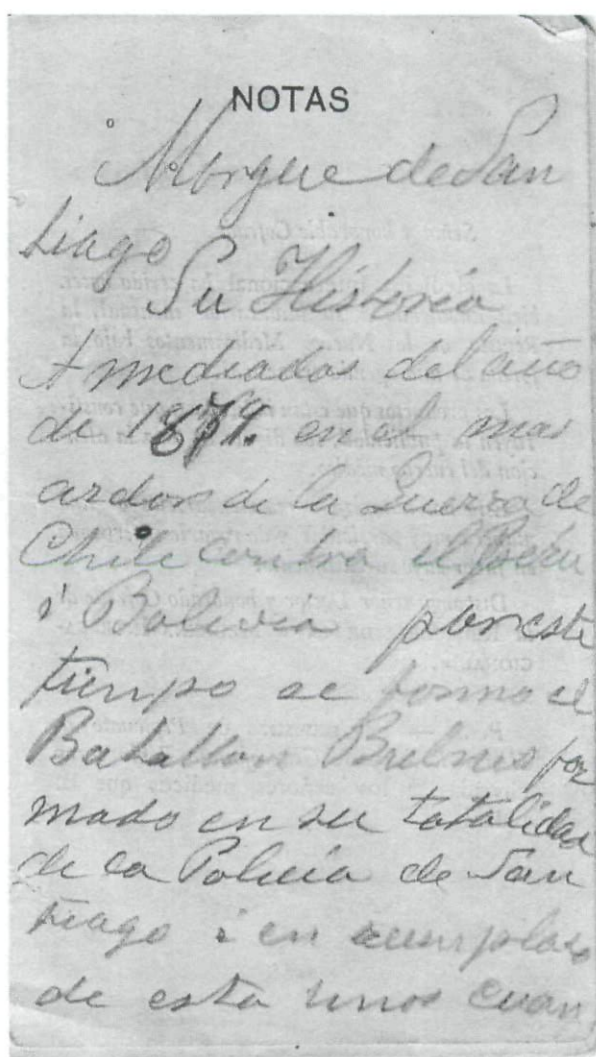 NOTAS
Morgue de San
tiago
Su Historia
A mediados del año
de 1879. en el mas
ardor de la Guerra de
Chile contra el Perú
i Bolivia por este
tiempo se formo el
Batallon Bulnes for
mado en su totalidad
de la Policia de San
tiago i en
de esta unos cuan